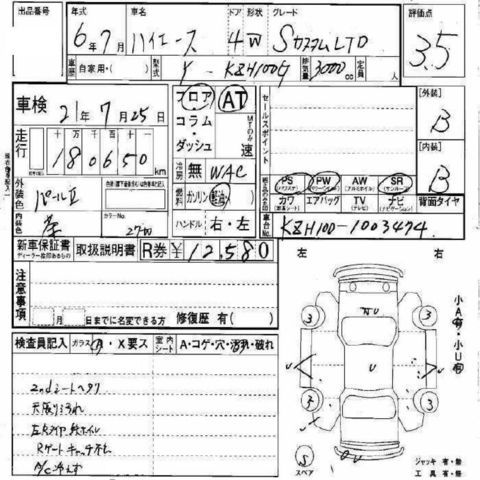 出品番号 年式 車名 ドア 形状 グレード 評価点
6年7月 ハイエース 4 W SカスタムLTD 3.5
車歴 自家用・( ) 型式 Y - KZH100G 排気量 3000cc 定員 人
車検 21年7月25日
フロア AT
コラム・ダッシュ 速
セールスポイント
[外装] B
走行 十万 万 千 百 十
180650km
冷房 無 WAC
[内装] B
外装色 パールⅡ
燃料 ガソリン 軽油
PS PW AW SR
(パワステ) (パワーウィンドウ) (アルミホイル) (サンルーフ)
カワ エアバッグ TV ナビ 背面タイヤ
(本革シート) (テレビ) (ナビゲーション)
内装色 茶 カラーNo.
ハンドル 右・左
車台No. KZH100-1003474
新車保証書 取扱説明書 R券 ¥12,580
ディーラー捺印あるもの
左 右
注意事項
月 日までに名変できる方 修復歴 有( )
小A・小U
検査員記入 ガラス・X要ス 室内シート A・コゲ・穴・汚れ・破れ
2ndシートヘタリ
天張りよごれ
Rゲートキャッチ不
A/C冷えず
U U
3 3
U
3
S U
スペア
ジャッキ 有・無
工具 有・無